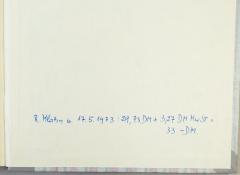 17.5.1973 29,73 DM + 3,27 DM MwSt =
33 - DM